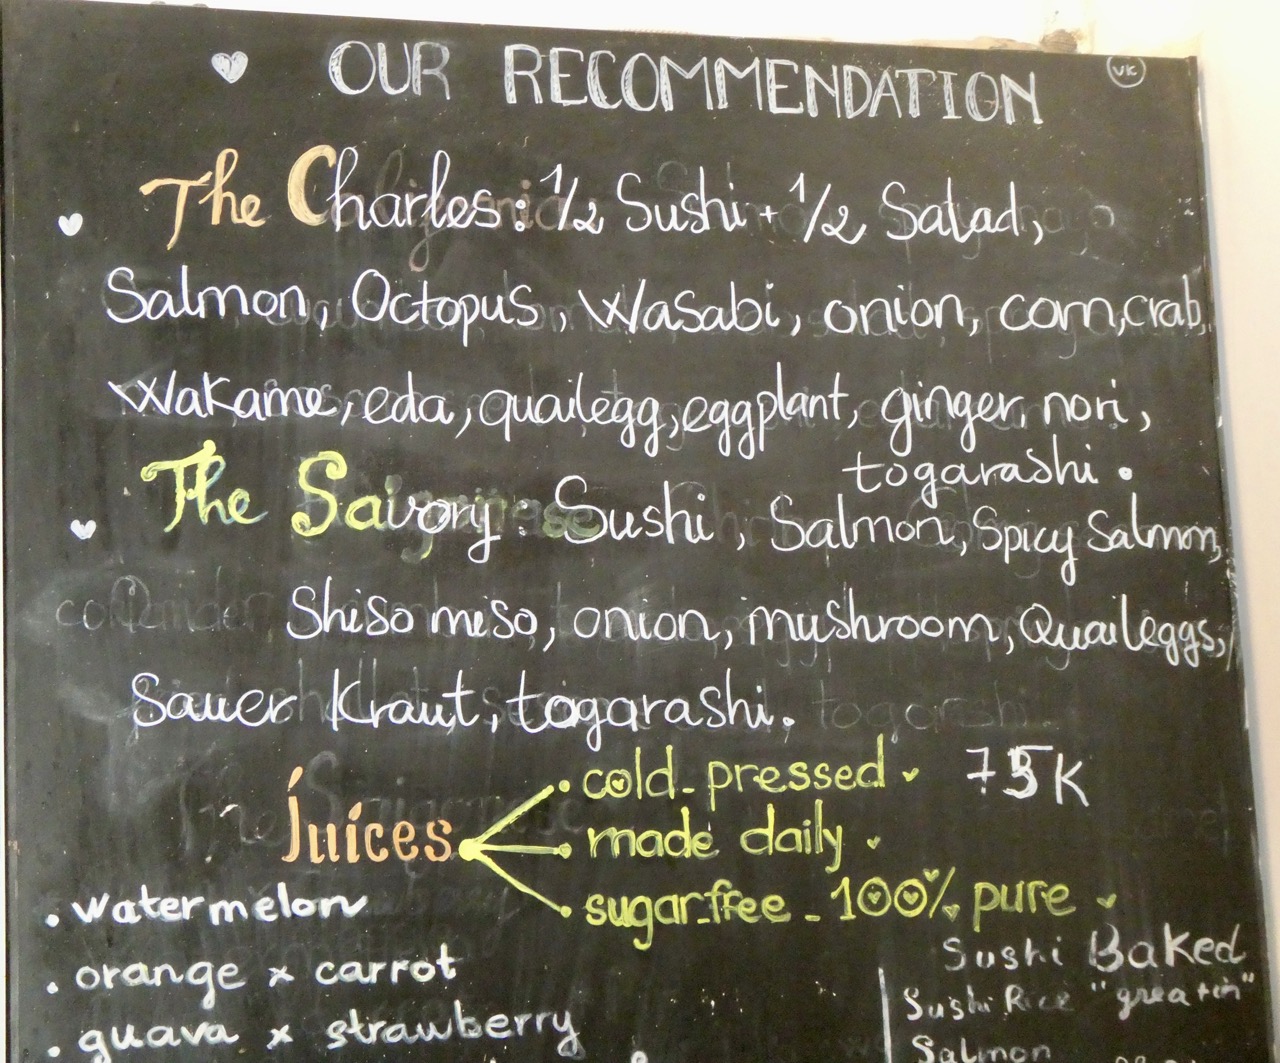 OUR RECOMMENDATION
VK
The Charles: 1/2 Sushi + 1/2 Salad,
Salmon, Octopus, Wasabi, onion, corn, crab,
Wakame, eda, quailegg, eggplant, ginger, nori,
togarashi.
The Savory: Sushi, Salmon, Spicy Salmon,
Shiso miso, onion, mushroom, Quaileggs,
Sauer Kraut, togarashi.
Juices
cold-pressed
75K
made daily
sugar-free - 100% pure
• watermelon
• orange x carrot
• guava x strawberry
Sushi Baked
Sushi Rice "greatin"
Salmon